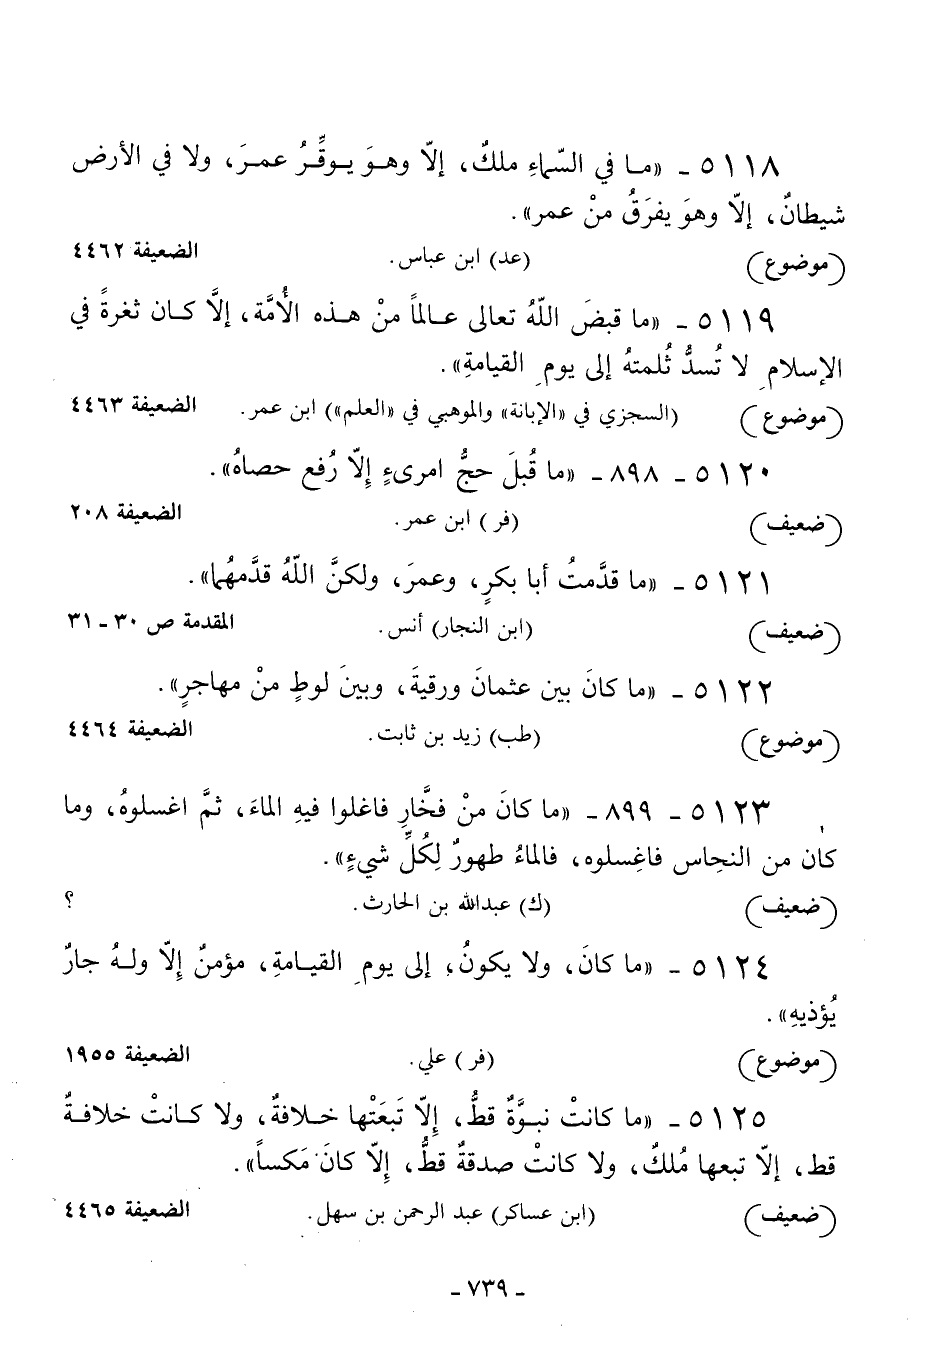 ٥١١٨ - «مـا في السّماءِ ملكٌ، إلّا وهـوَ يـوقِّـرُ عمـرَ، ولا في الأرض
شيطانٌ، إلّا وهوَ يفرَقُ منْ عمر».
(موضوع) (عد) ابن عباس. الضعيفة ٤٤٦٢
٥١١٩ - «ما قبضَ اللّهُ تعالى عـالماً منْ هـذه الأُمَّة، إلَّا كـان ثغرةً في
الإسلامِ لا تُسدُّ ثُلمتهُ إلى يومِ القيامةِ».
(موضوع) (السجزي في «الإبانة» والموهبي في «العلم») ابن عمر. الضعيفة ٤٤٦٣
٥١٢٠ - ٨٩٨ - «ما قُبلَ حجُّ امرىءٍ إلّا رُفع حصاهُ».
(ضعيف) (فر) ابن عمر. الضعيفة ٢٠٨
٥١٢١ - «ما قدَّمتُ أبا بكرٍ، وعمرَ، ولكنَّ اللّهُ قدَّمهُما».
(ضعيف) (ابن النجار) أنس. المقدمة ص ٣٠ - ٣١
٥١٢٢ - «ما كانَ بين عثمانَ ورقيةَ، وبينَ لوطٍ منْ مهاجرٍ».
(موضوع) (طب) زيد بن ثابت. الضعيفة ٤٤٦٤
٥١٢٣ - ٨٩٩ - «ما كانَ منْ فخَّارٍ فاغلوا فيهِ الماءَ، ثمَّ اغسلوهُ، وما
كان من النحِاس فاغِسلوه، فالماءُ طهورٌ لِكُلِّ شيءٍ».
(ضعيف) (ك) عبدالله بن الحارث. ؟
٥١٢٤ - «ما كانَ، ولا يكونُ، إلى يومِ القيـامةِ، مؤمنٌ إلّا ولـهُ جارٌ
يُؤذيهِ».
(موضوع) (فر) علي. الضعيفة ١٩٥٥
٥١٢٥ - «ما كانتْ نبـوَّةٌ قطُّ، إلّا تَبعَتْها خـلافةٌ، ولا كـانتْ خلافـةٌ
قط، إلّا تبعها مُلكٌ، ولا كانتْ صدقةٌ قطُّ، إلّا كانَ مَكساً».
(ضعيف) (ابن عساكر) عبد الرحمن بن سهل. الضعيفة ٤٤٦٥
- ٧٣٩ -